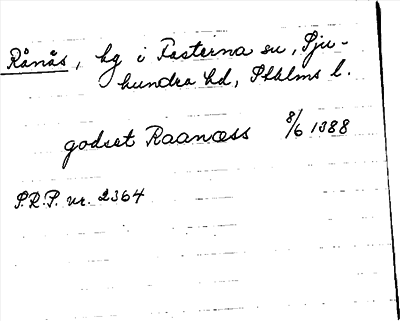 Rånäs, hg i Fasterna sn, Sju-
hundra hd, Sthlms l.
godset Raanæss 8/6 1388
S.R.P. nr. 2364